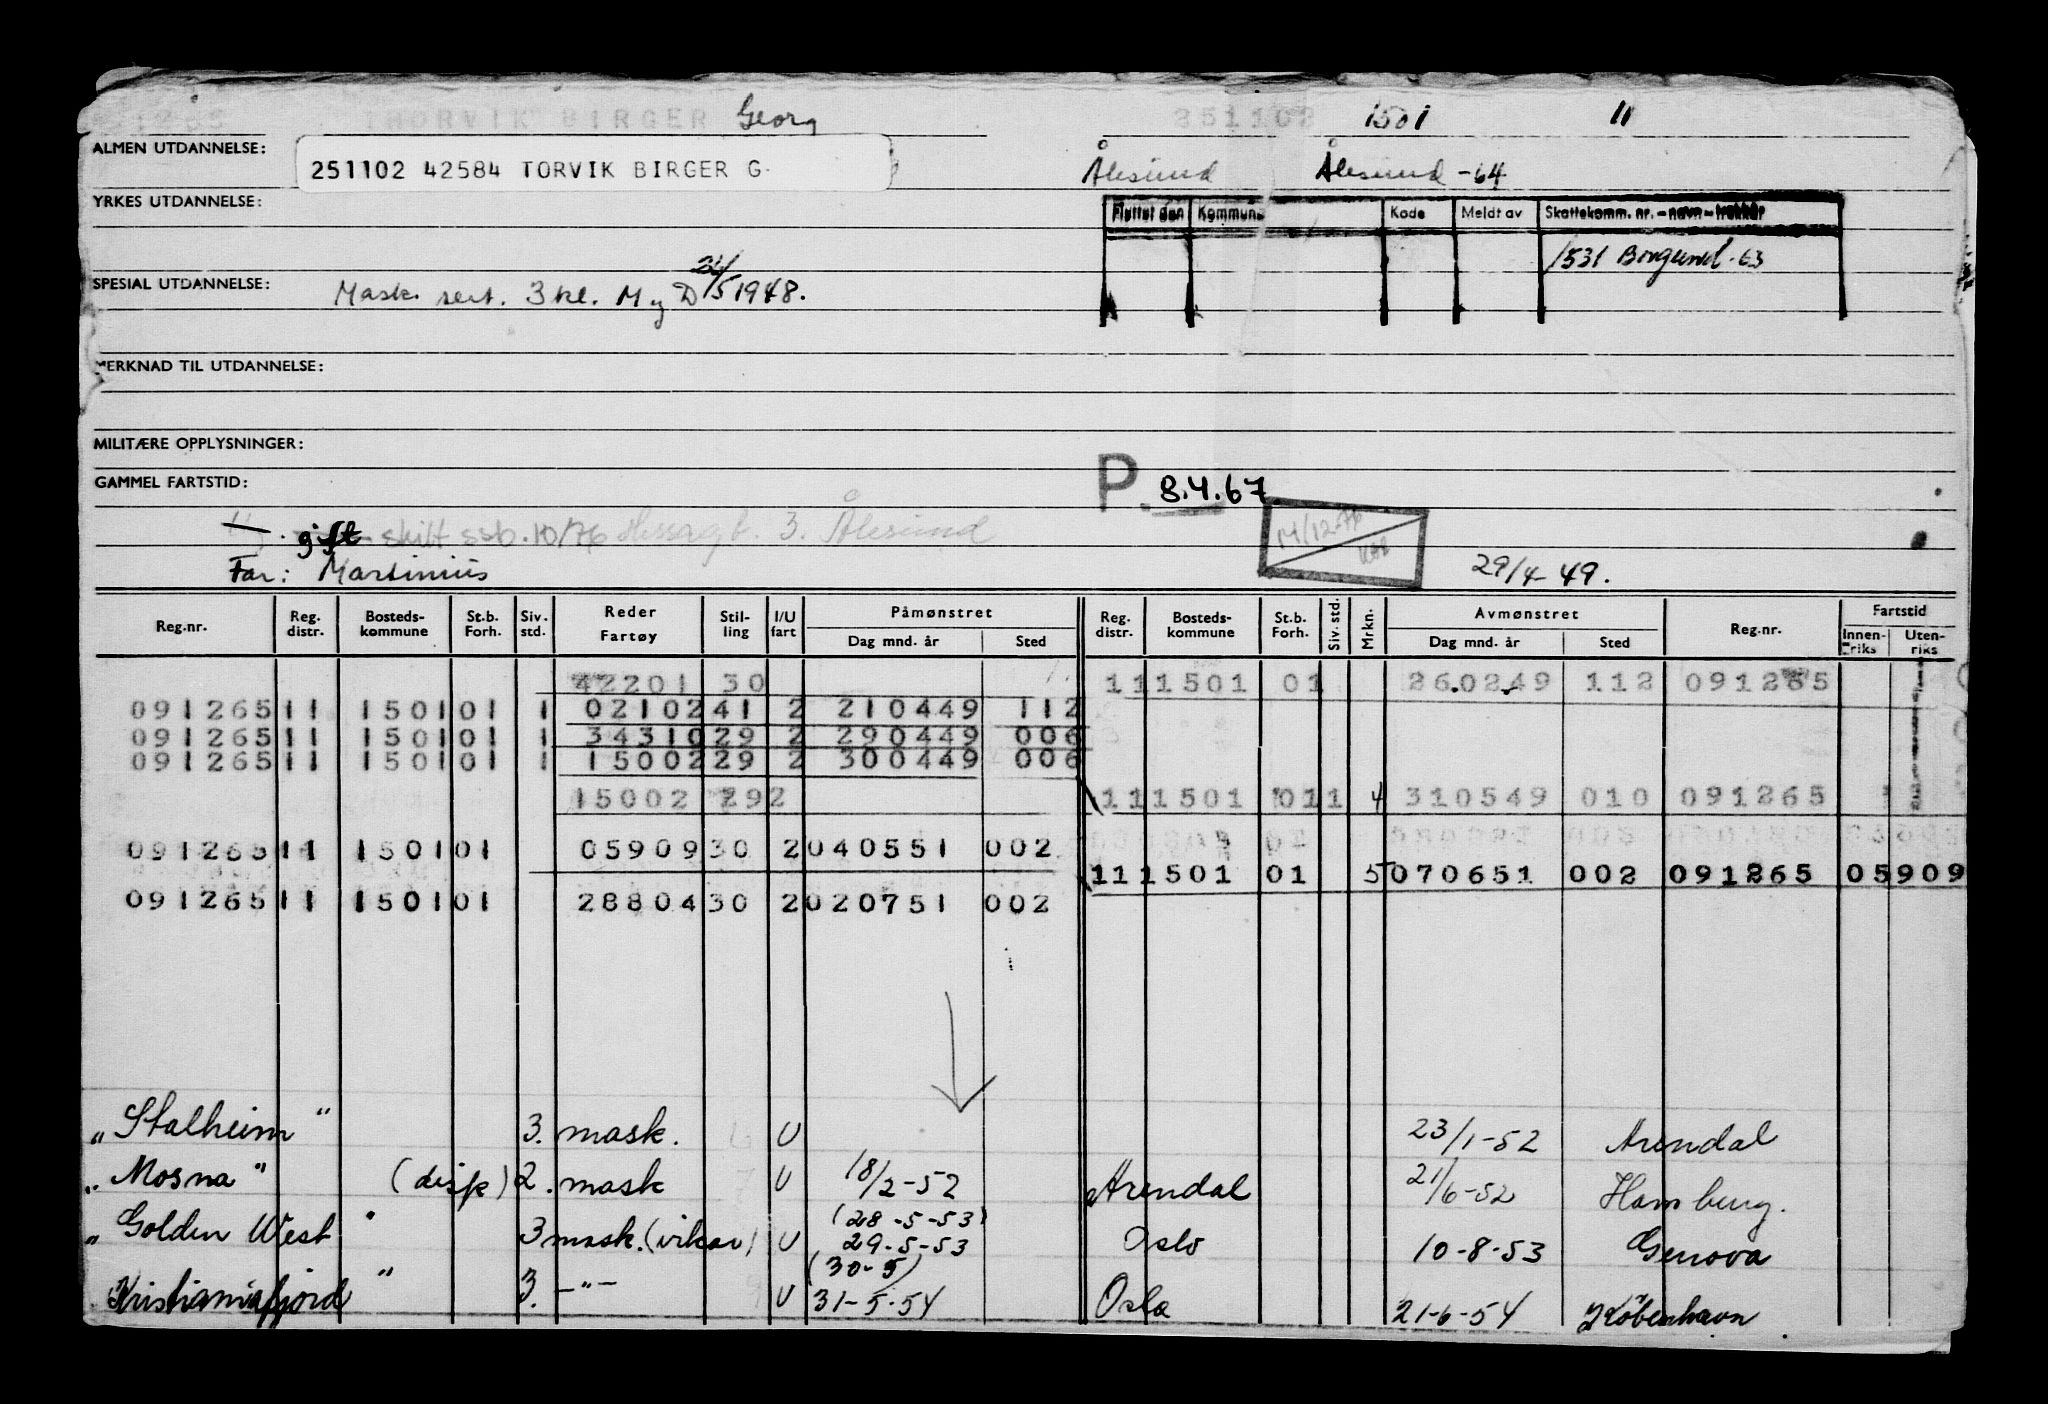 THORVIK BIRGER Georg 251102 1501 11
ALMEN UTDANNELSE:
251102 42584 TORVIK BIRGER G.
Ålesund Ålesund -64
YRKES UTDANNELSE:
Flyttet den Kommune Kode Meldt av Skattekomm. nr. - navn - trekkår
1531 Borgund - 63
SPESIAL UTDANNELSE: Mask. sert. 3 kl. M og D /5 1948.
MERKNAD TIL UTDANNELSE:
MILITÆRE OPPLYSNINGER:
GAMMEL FARTSTID:
P. 8.4.67
gift skilt ssb. 10/76 3. Ålesund
M/12-76
Far: Martinius 29/4-49.
Reg.nr. Reg. distr. Bosteds-kommune St.b. Forh. Siv. std. Reder Fartøy Stil-ling I/U fart Påmønstret Dag mnd. år Sted Reg. distr. Bosteds-kommune St.b. Forh. Siv. std. Mrkn. Avmønstret Dag mnd. år Sted Reg.nr. Fartstid Innen-riks Uten-riks
42201 30 11 1501 01 260249 112 091265
091265 11 1501 01 1 02102 41 2 210449 112
091265 11 1501 01 1 34310 29 2 290449 006
091265 11 1501 01 1 15002 29 2 300449 006
15002 29 2 11 1501 01 1 4 310549 010 091265
091265 11 1501 01 05909 30 2 040551 002
11 1501 01 5 070651 002 091265 05909
091265 11 1501 01 28804 30 2 020751 002
"Stalheim" 3. mask. U 23/1-52 Arendal
"Mosna" (disp) 2. mask U 18/2-52 Arendal 21/6-52 Hamburg.
(28-5-53)
"Golden West" 3 mask. (vikar) U 29-5-53 Oslo 10-8-53 Genova
(30-5)
Kristianiafjord" 3. -"- U 31-5-54 Oslo 21-6-54 København